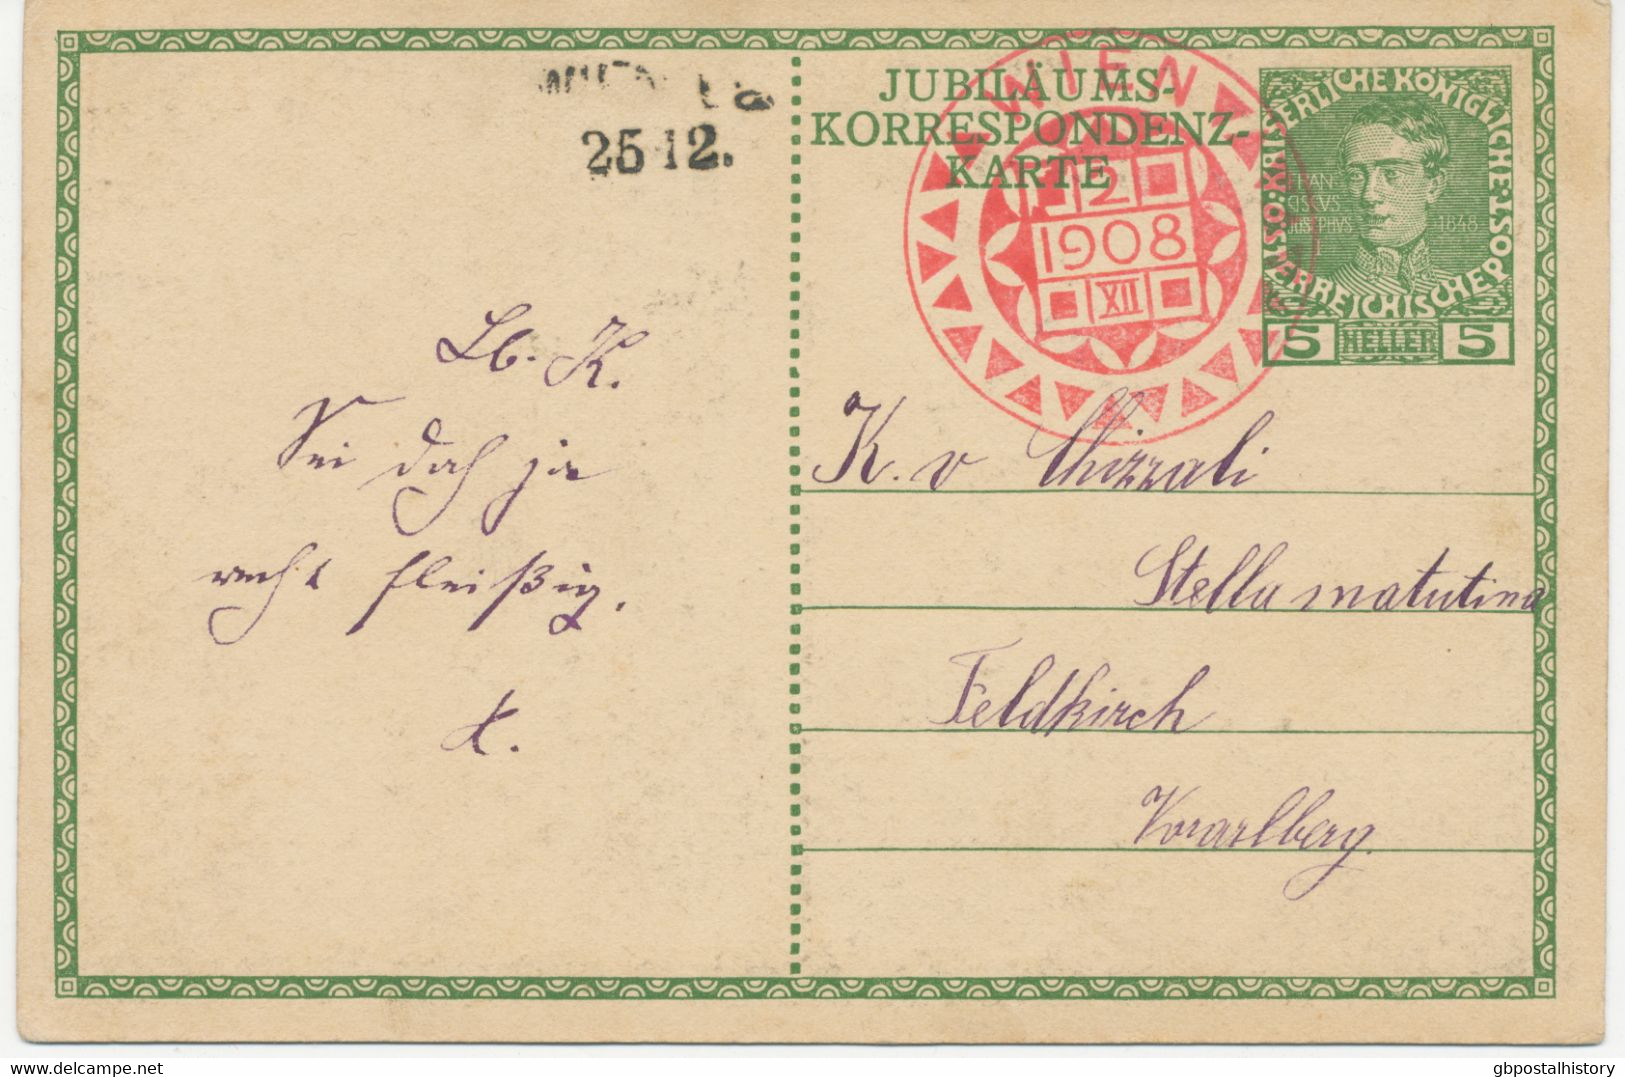 25 12.
Lb. K.
Sei doch ja
recht fleißig.
K.
JUBILÄUMS-
KORRESPONDENZ-
KARTE
WIEN
2
1908
XII
KAISERLICHE KÖNIGLICHE
ÖSTERREICHISCHE POST
1848
5 HELLER 5
K. v Chizzali
Stella matutina
Feldkirch
Vorarlberg.
delcampe.net
gbpostalhistory